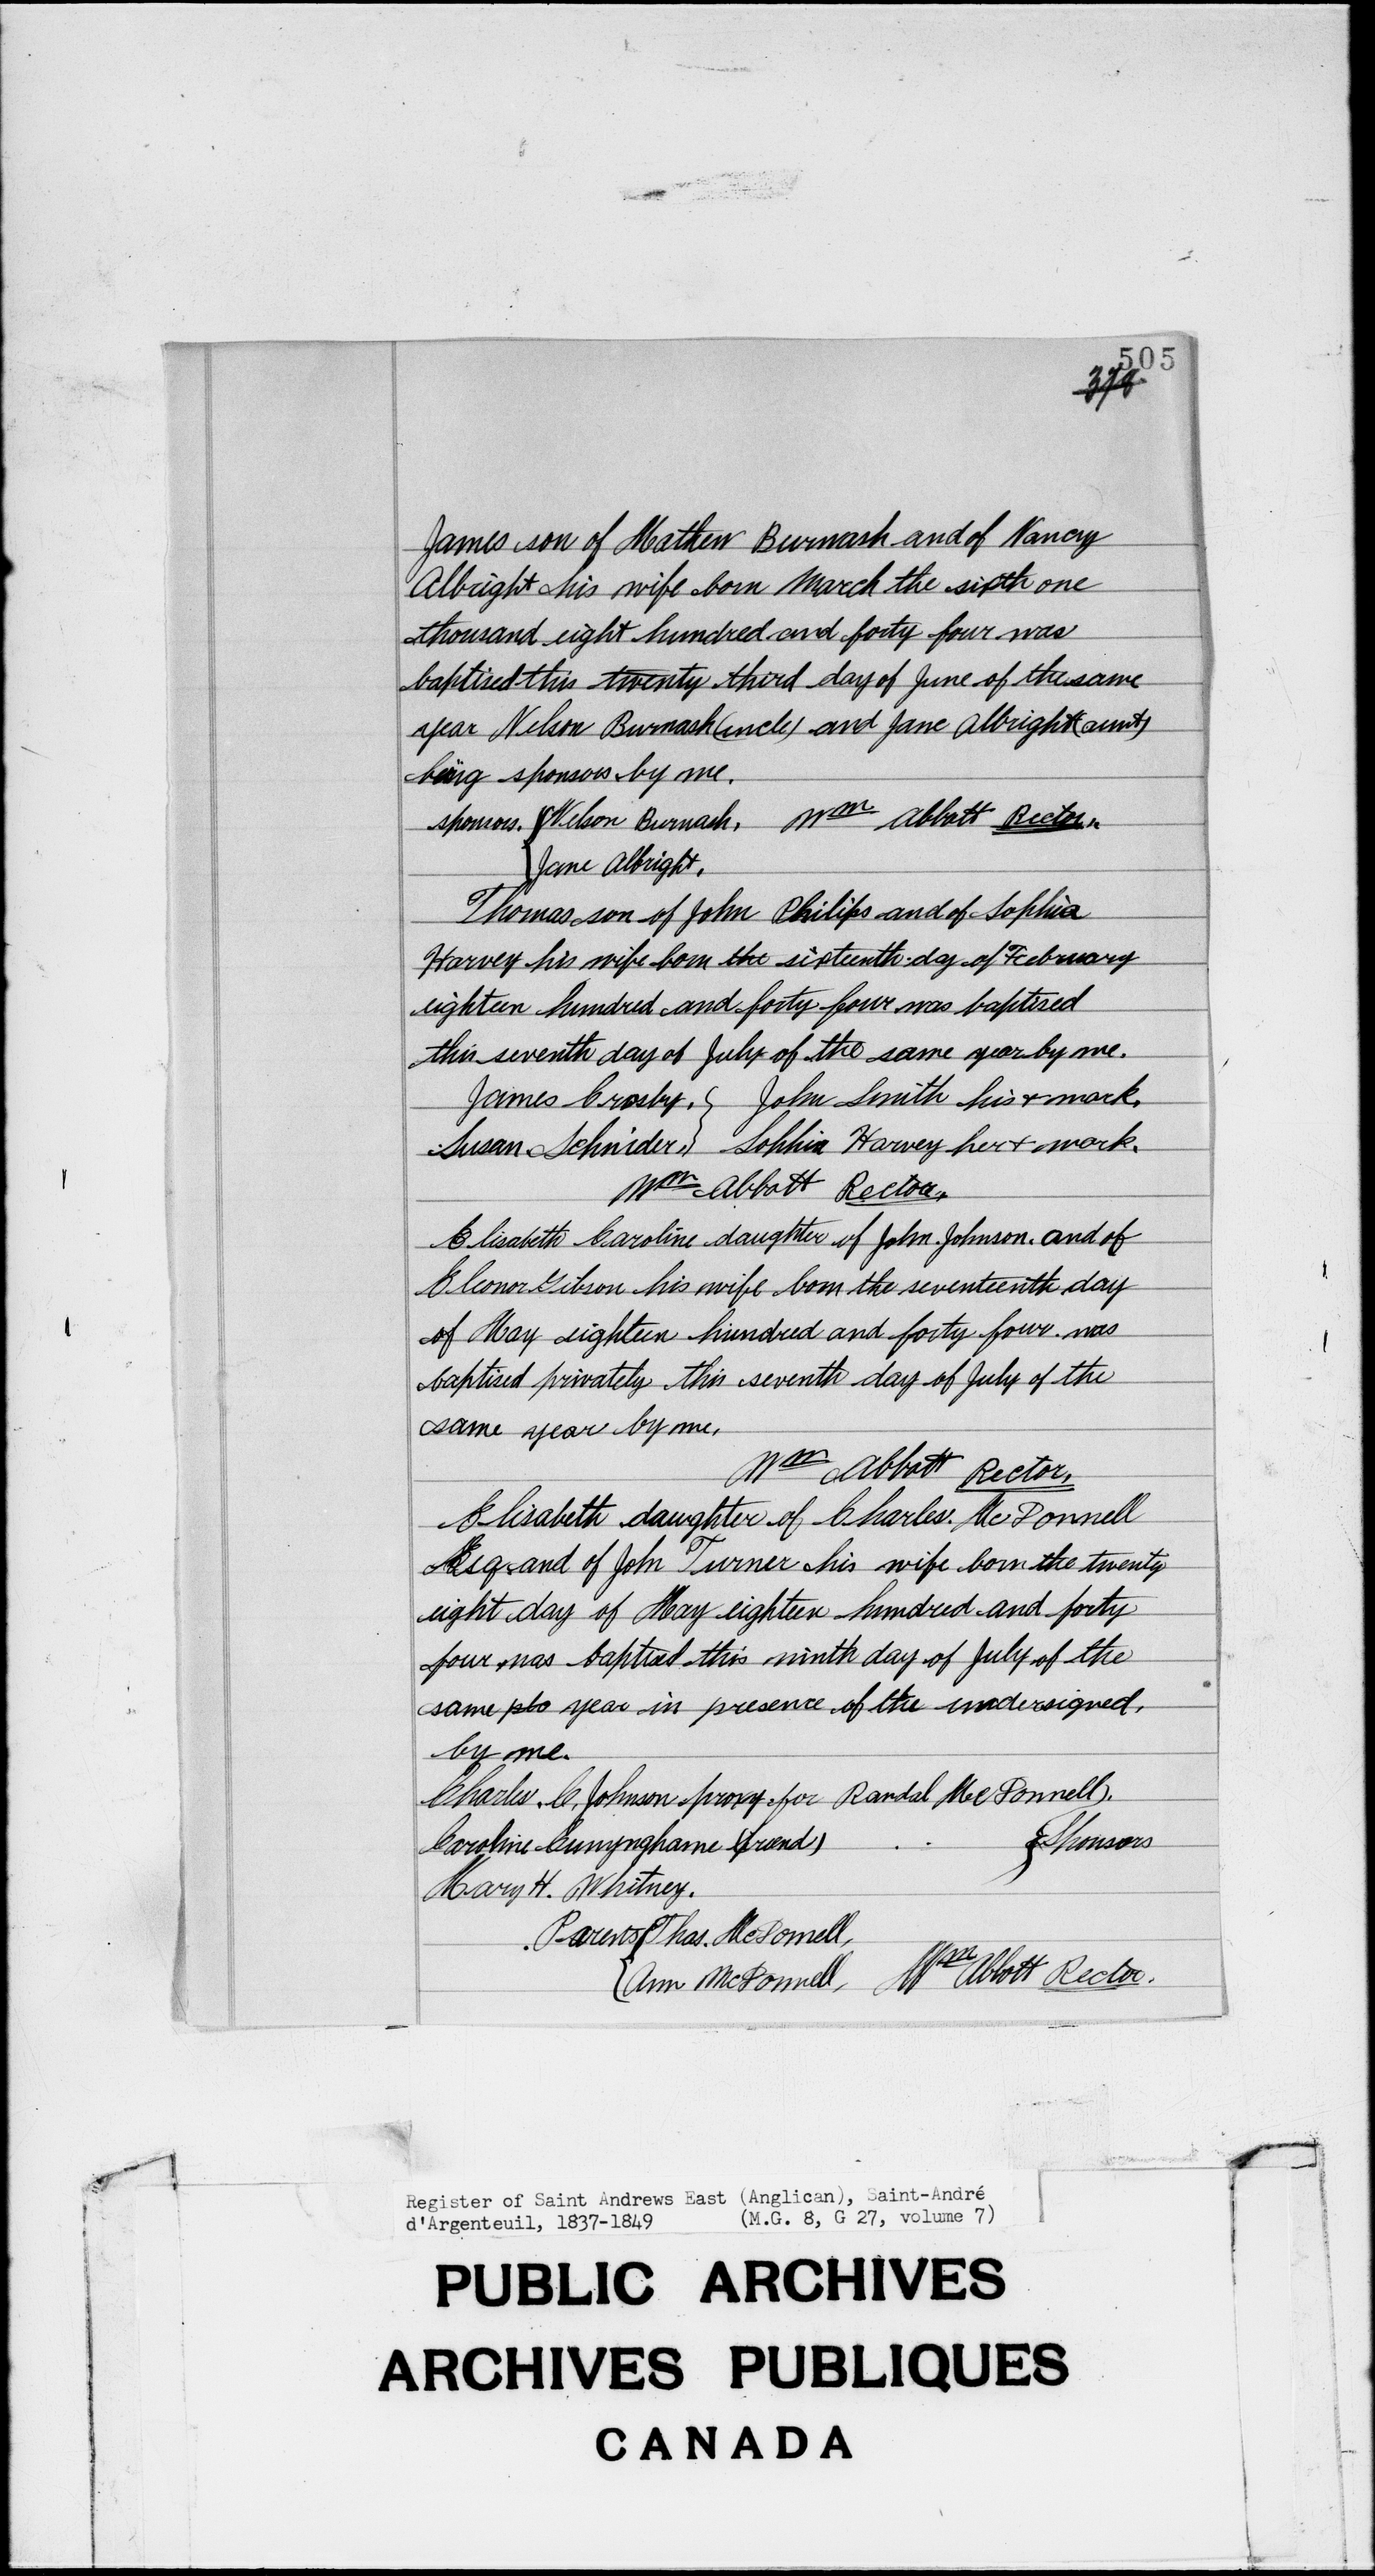 505
378
James son of Mathew Burwash and of Nancy
Albright his wife born March the sixth one
thousand eight hundred and forty four was
baptised this twenty third day of June of the same
year Nelson Burwash (uncle) and Jane Albright (aunt)
being sponsors by me.
sponsors. {Nelson Burwash. Wm Abbott Rector.
{Jane Albright.
Thomas son of John Philips and of Sophia
Harvey his wife born the sixteenth day of February
eighteen hundred and forty four was baptised
this seventh day of July of the same year by me.
James Crosby. } John Smith his + mark.
Susan Schnider. } Sophia Harvey her + mark.
Wm Abbott Rector.
Elisabeth Caroline daughter of John Johnson. and of
Eleonor Gibson his wife born the seventeenth day
of May eighteen hundred and forty four. was
baptised privately this seventh day of July of the
same year by me.
Wm Abbott Rector.
Elisabeth daughter of Charles. McDonnell
Esq. and of John Turner his wife born the twenty
eight day of May eighteen hundred and forty
four was baptised this ninth day of July of the
same year in presence of the undersigned.
by me.
Charles. C. Johnson proxy for Randal McDonnell).
Caroline Cunynghame (friend) . . } Sponsors
Mary H. Whitney.
Parents {Thos. McDonnell,
{Ann McDonnell, Wm Abbott Rector.
Register of Saint Andrews East (Anglican), Saint-André
d'Argenteuil, 1837-1849 (M.G. 8, G 27, volume 7)
PUBLIC ARCHIVES
ARCHIVES PUBLIQUES
CANADA